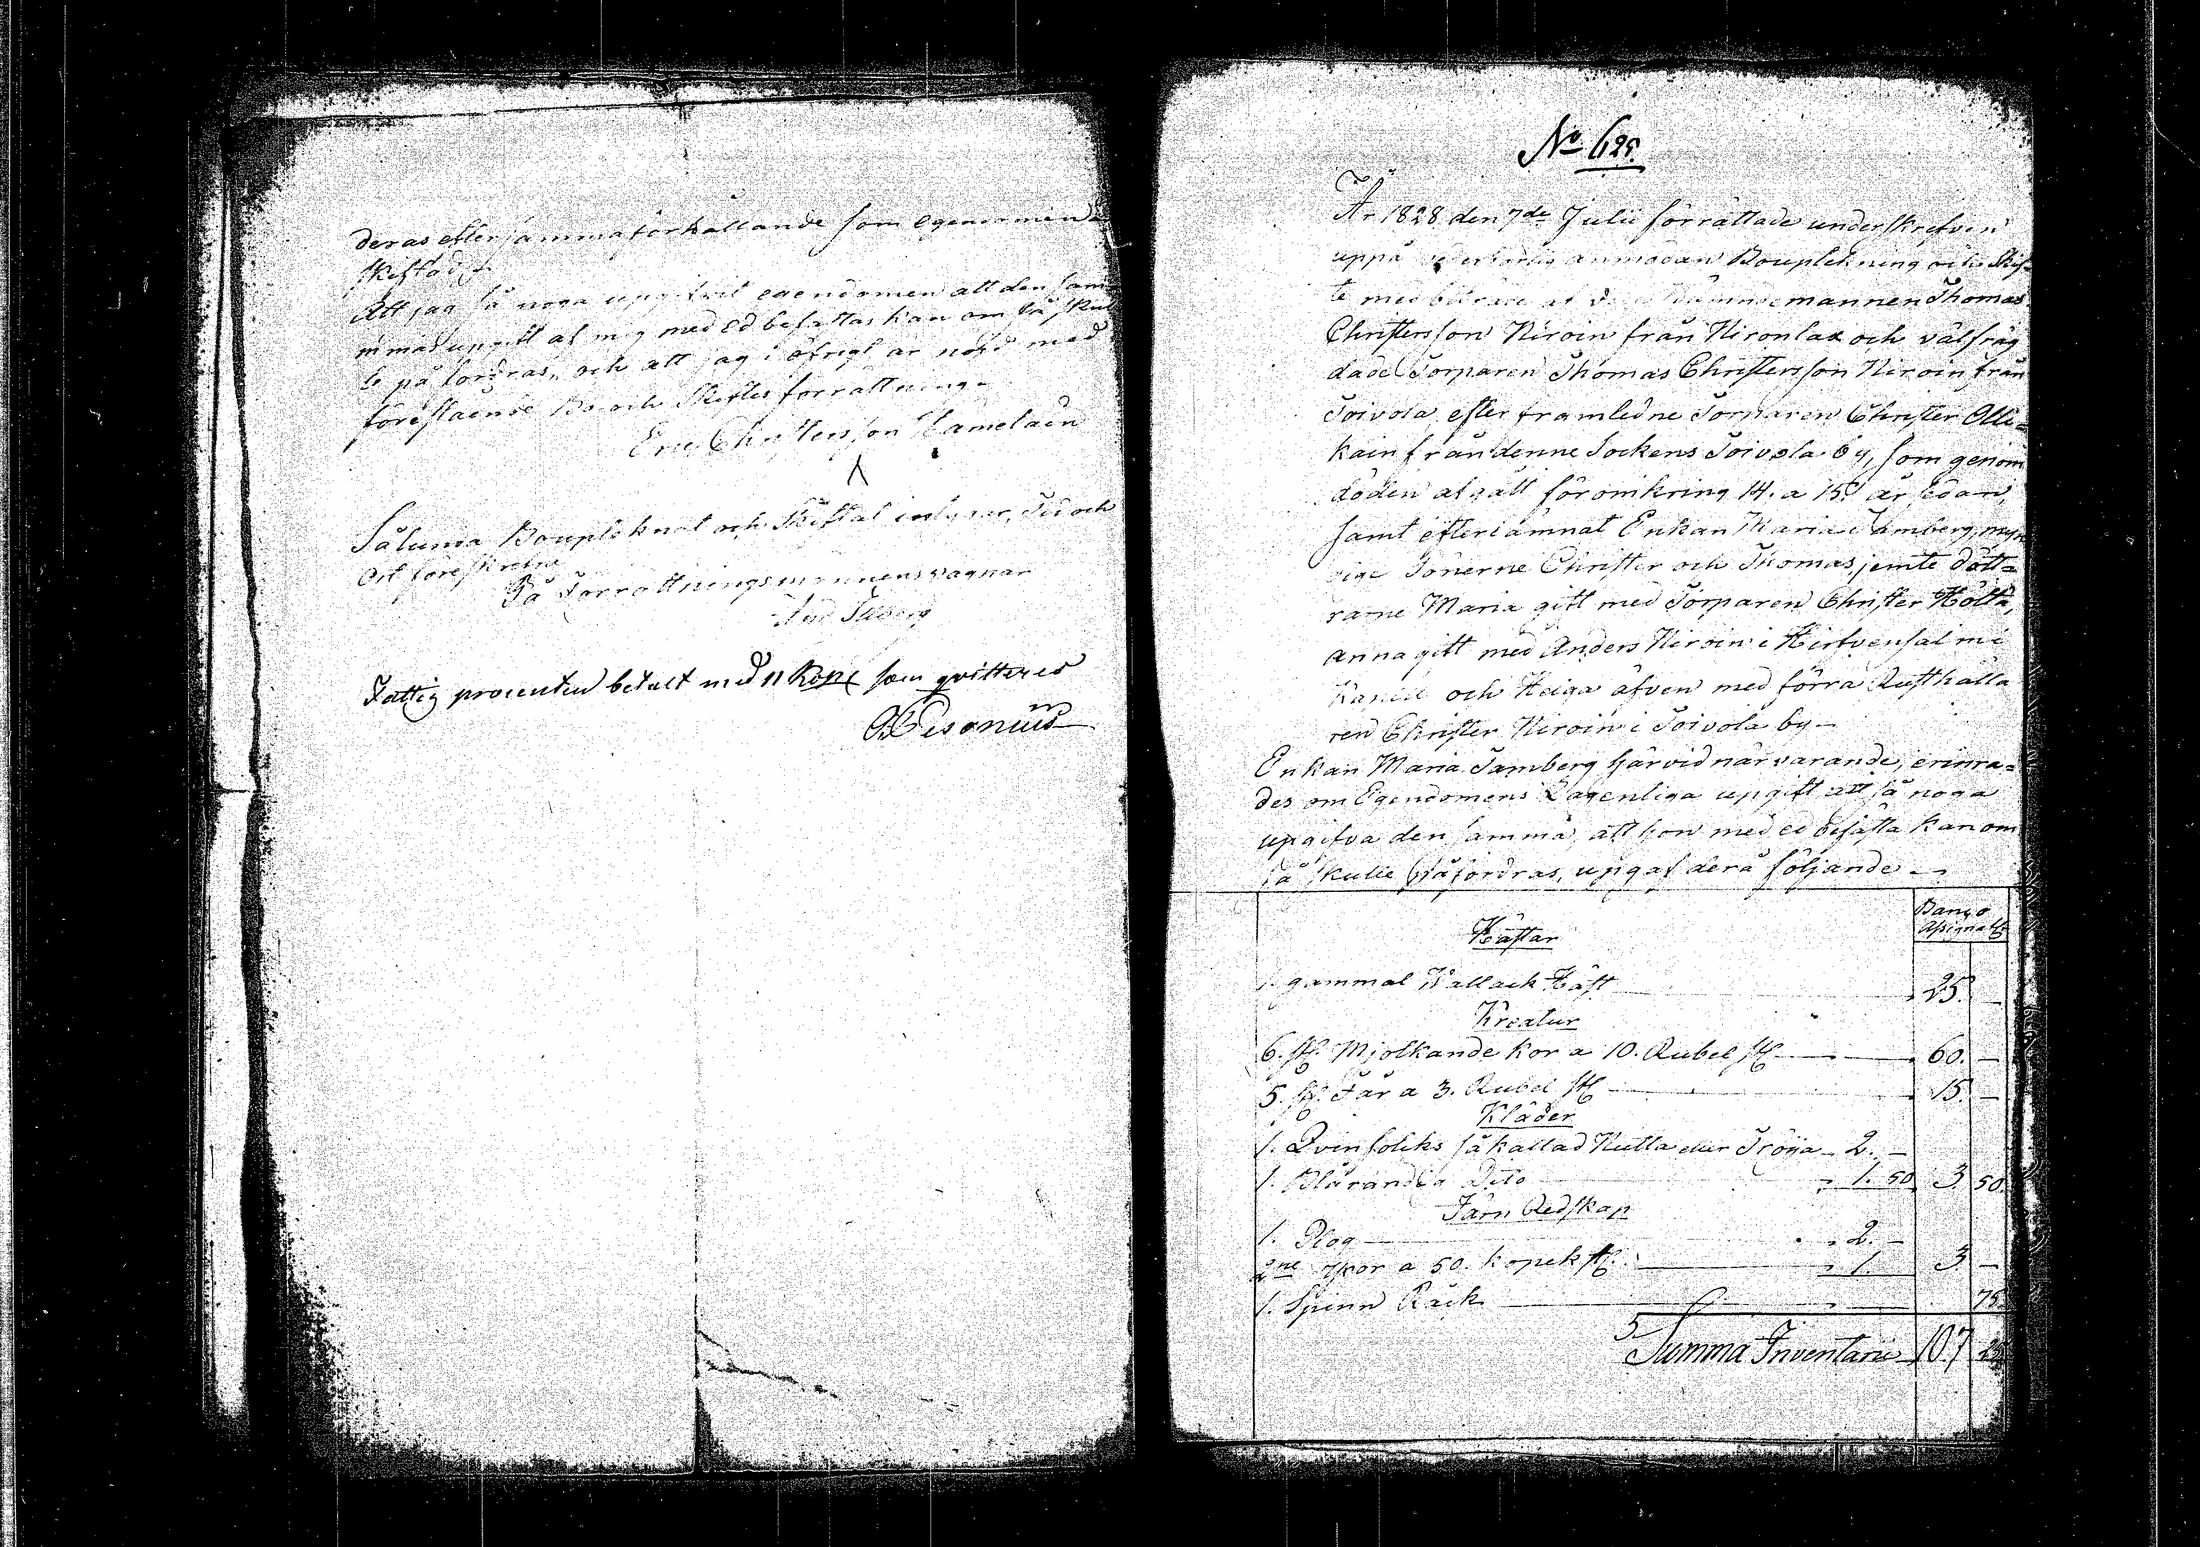 deras efter samma förhållande som egendomen
skeftad,
Att jag så noga upgifvit egendomen att den sam=
mas upgift af mig med ed befästas kan om så skul
le påfordras, och att jag i öfrigt är nögd med
föreståënde Bo och Skiftes förrättning
Eric Christersson Hämeläin
Sålunda Boupleknat och Skiftat intygar, Tid och
Ort föreskrefne
På Förrättningsmannens vägnar
Fattig procenten betalt med 11 Kop som qvitteres
No 625.
År 1828 den 7de Julii förrättade underskrefven
uppå vederbörlig anmodan Bouptekning och Skif=
te med biträde af Nämndemannen Thomas
Christersson Hiroin från Hironlax och välfräg
dade Torparen Thomas Christersson Hiroin från
Toivola, efter framledne Torparen Christer Olli=
kain från denne Sockens Toivola by, som genom
döden afgått för omkring 14. a 15. år sedan,
samt efterlämnat Enkan Maria Tamberg, myn
dige Sönerne Christer och Thomas jemte dött=
rarne Maria gift med Torparen Christer Höltä,
Anna gift med Anders Hiroin i Hirfvensalmi
Kapell och Helga äfven med förra Rusthålla
ren Christer Hiroin i Toivola by
Enkan Maria Tamberg härvid närvarande, erinra=
des om Egendomens Lagenliga upgift att så noga
upgifva den samma, att hon med ed befästa kan om
så skulle påfordras, upgaf dera följande
Banco
Assignat
Hästar
1. gammal Wallack Häst 25. —
Kreatur
6. st. Mjolkande kor a 10. Rubel st 60. —
5. st. Får a 3. Rubel st 15. —
Kläder
1. Qvinfolks så kallad Kulta eller Tröija 2. —
1. Blårandig Dito 1. 50 3. 50.
Järn Redskap
1. Plog 2. —
2ne yxor a 50. kopek st 1. 3. —
1. Spinn Råck 75.
Summa Inventarie 107 25